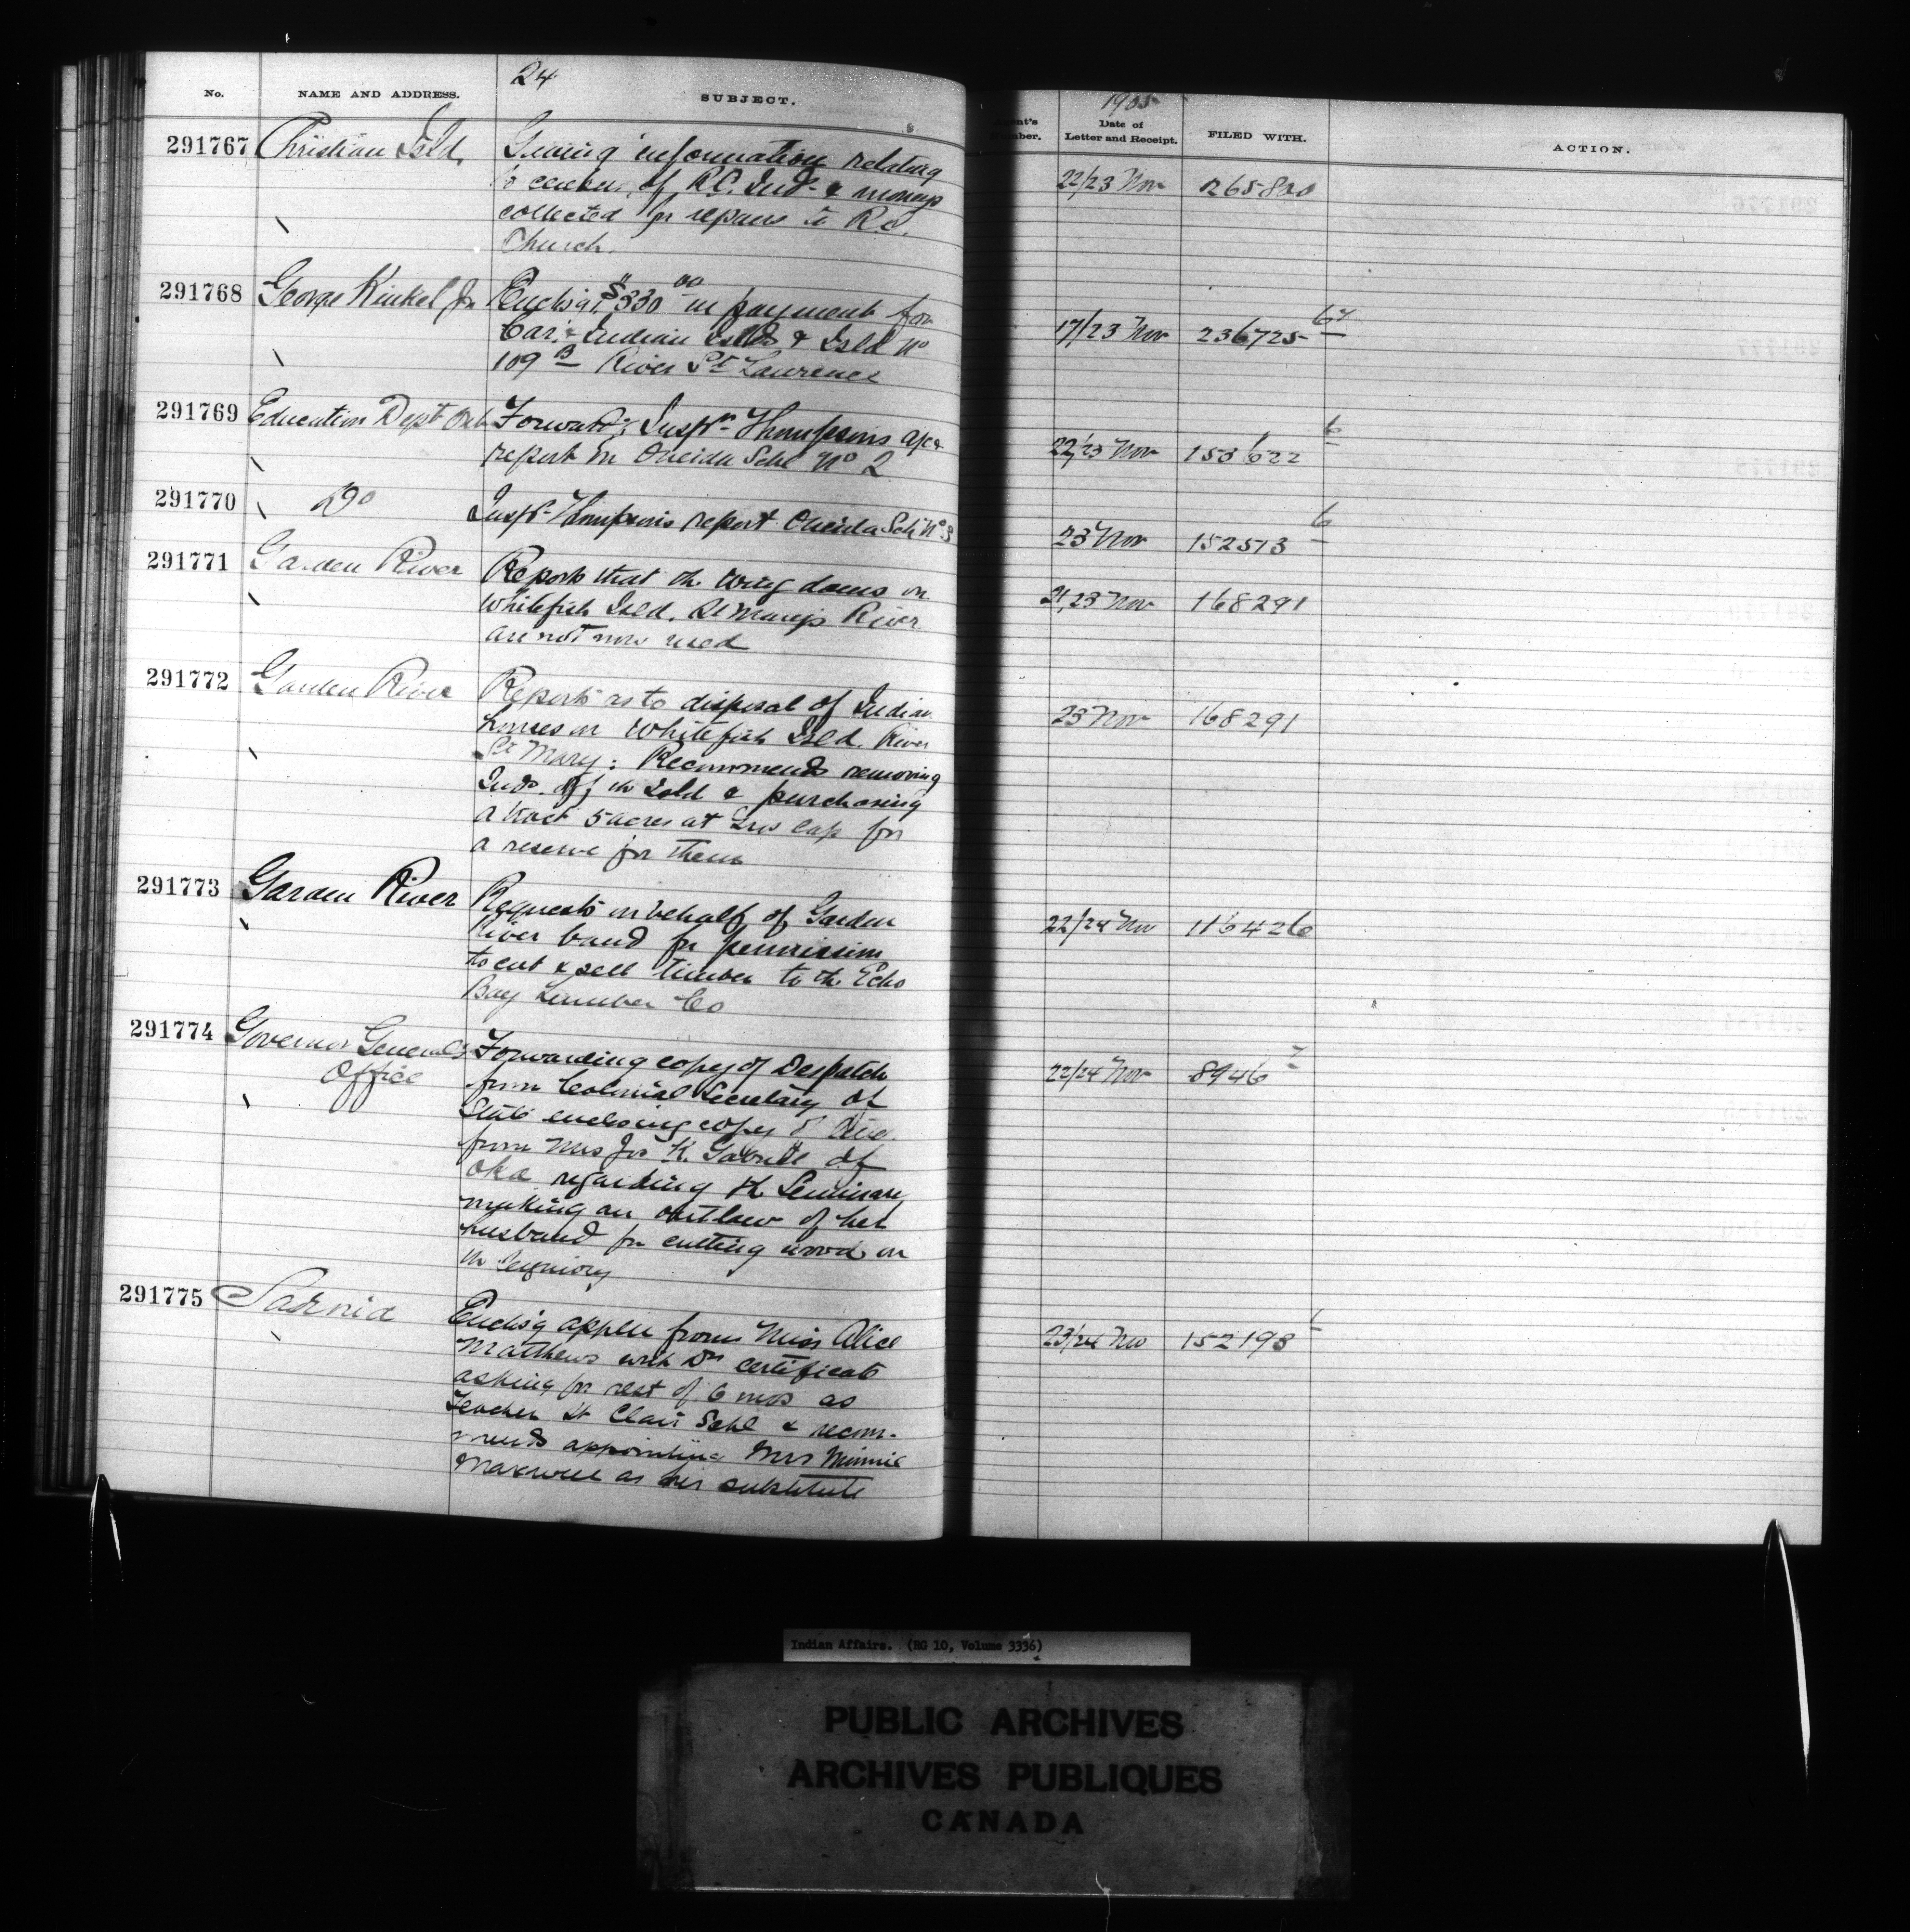 24
No. NAME AND ADDRESS. SUBJECT.
291767 Christian Isld. Giving information relating
to census of R.C. Inds & moneys
collected for repairs to R.C.
Church.
291768 George Kinkel Jr Enclsg. $330 00 in payment for
Car. & Indian Islds & Isld No
109 B River St Lawrence
291769 Education Dept Ont Forwardg Inspr Thompsons
report on Oneida Schl No 2
291770 Do Inspr Thompson's report Oneida Sch No 3
291771 Garden River Reports that the wing dams on
Whitefish Isld. St Marys River
are not now used
291772 Garden River Reports as to disposal of Indian
houses on Whitefish Isld. River
St Mary: Recommends removing
Inds. off the Isld & purchasing
a tract 5 acres at Gros Cap for
a reserve for them
291773 Garden River Requests on behalf of Garden
River band for permission
to cut & sell timber to the Echo
Bay Lumber Co
291774 Governor General's Forwarding copy of Despatch
Office from Colonial Secretary of
State enclosing copy of
from Mrs Jos K. Gabriel of
Oka regarding the Seminary
making an outlaw of her
husband for cutting wood on
the Seigniory
291775 Sarnia Enclsg appln from Miss Alice
Matthews with Drs certificate
asking for rest of 6 mos as
Teacher St Clair Schl & recom-
mends appointing Mrs Minnie
Maxwell as her substitute
1905
Number. Date of
Letter and Receipt. FILED WITH. ACTION.
22/23 Nov 265800
17/23 Nov 236725 67
22/23 Nov 153622 6
23 Nov 152573 6
21/23 Nov 168291
23 Nov 168291
22/24 Nov 116426
22/24 Nov 8946 7
23/24 Nov 152198
Indian Affairs. (RG 10, Volume 3336)
PUBLIC ARCHIVES
ARCHIVES PUBLIQUES
CANADA